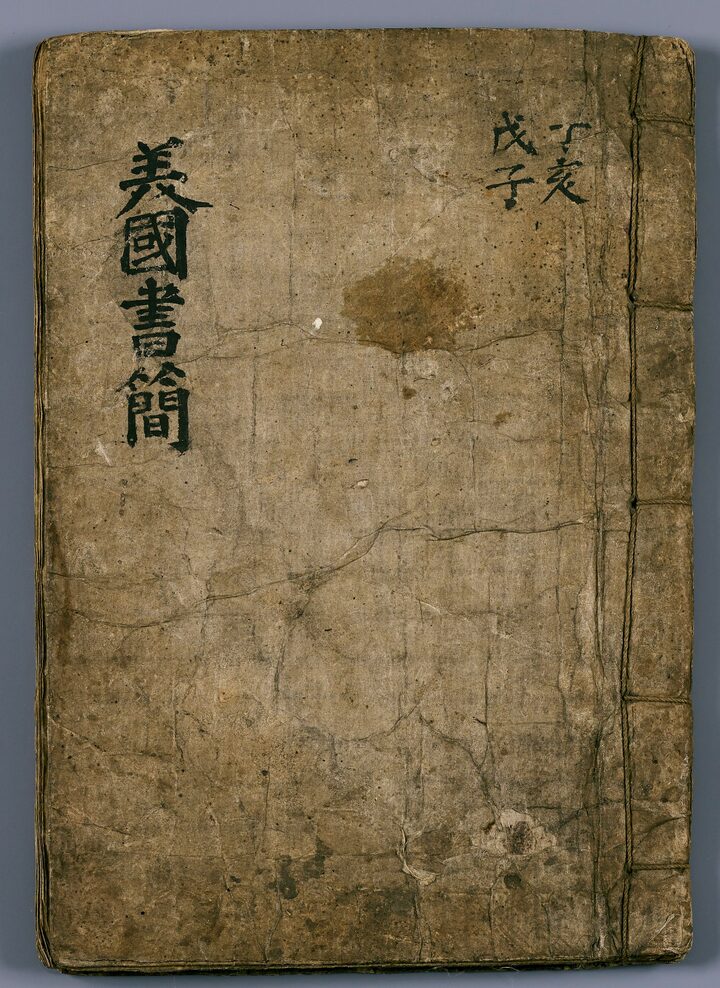 丁亥
戊子
美國書簡